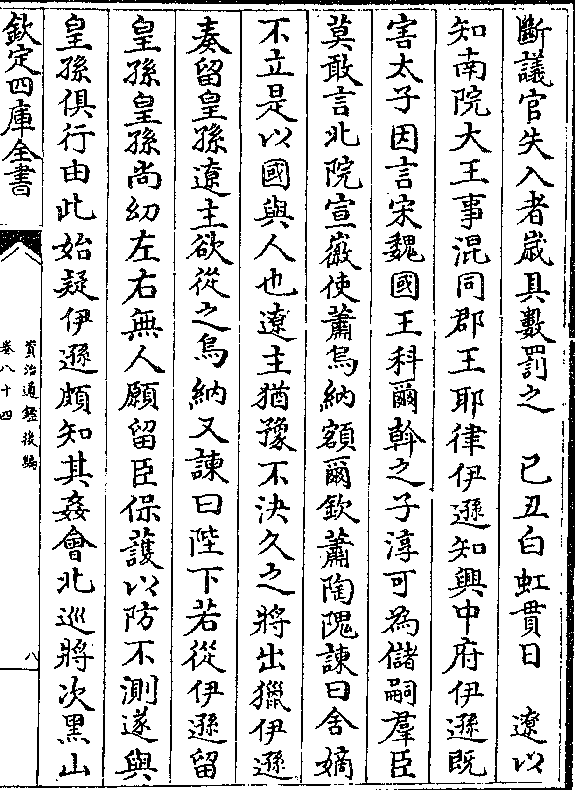 斷議官失入者嵗具數罰之　己丑白虹貫日　遼以
知南院大王事混同郡王耶律伊遜知興中府伊遜既
害太子因言宋魏國王科爾斡之子淳可為儲嗣羣臣
莫敢言北院宣徽使蕭烏納額爾欽蕭陶隗諫曰舍嫡
不立是以國與人也遼主猶豫不決久之將出獵伊遜
奏留皇孫遼主欲從之烏納又諫曰陛下若從伊遜留
皇孫皇孫尚幼左右無人願留臣保護以防不測遂與
皇孫俱行由此始疑伊遜頗知其姦會北巡將次黑山
欽定四庫全書
資治通鑑後編
卷八十四
八